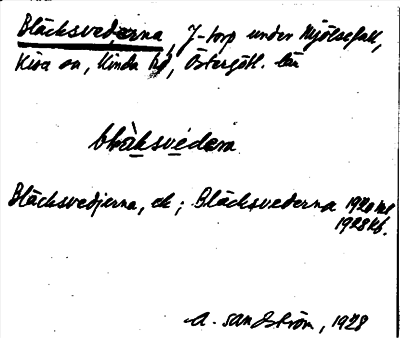 Bläcksvederna, J-torp under Mjölsefall,
Kisa sn, Kinda hd, Östergötl. län
bläksvédærna
Bläcksvedjerna, ek; Bläcksvederna 1920 ml
1928 kb.
A. Sandström, 1928